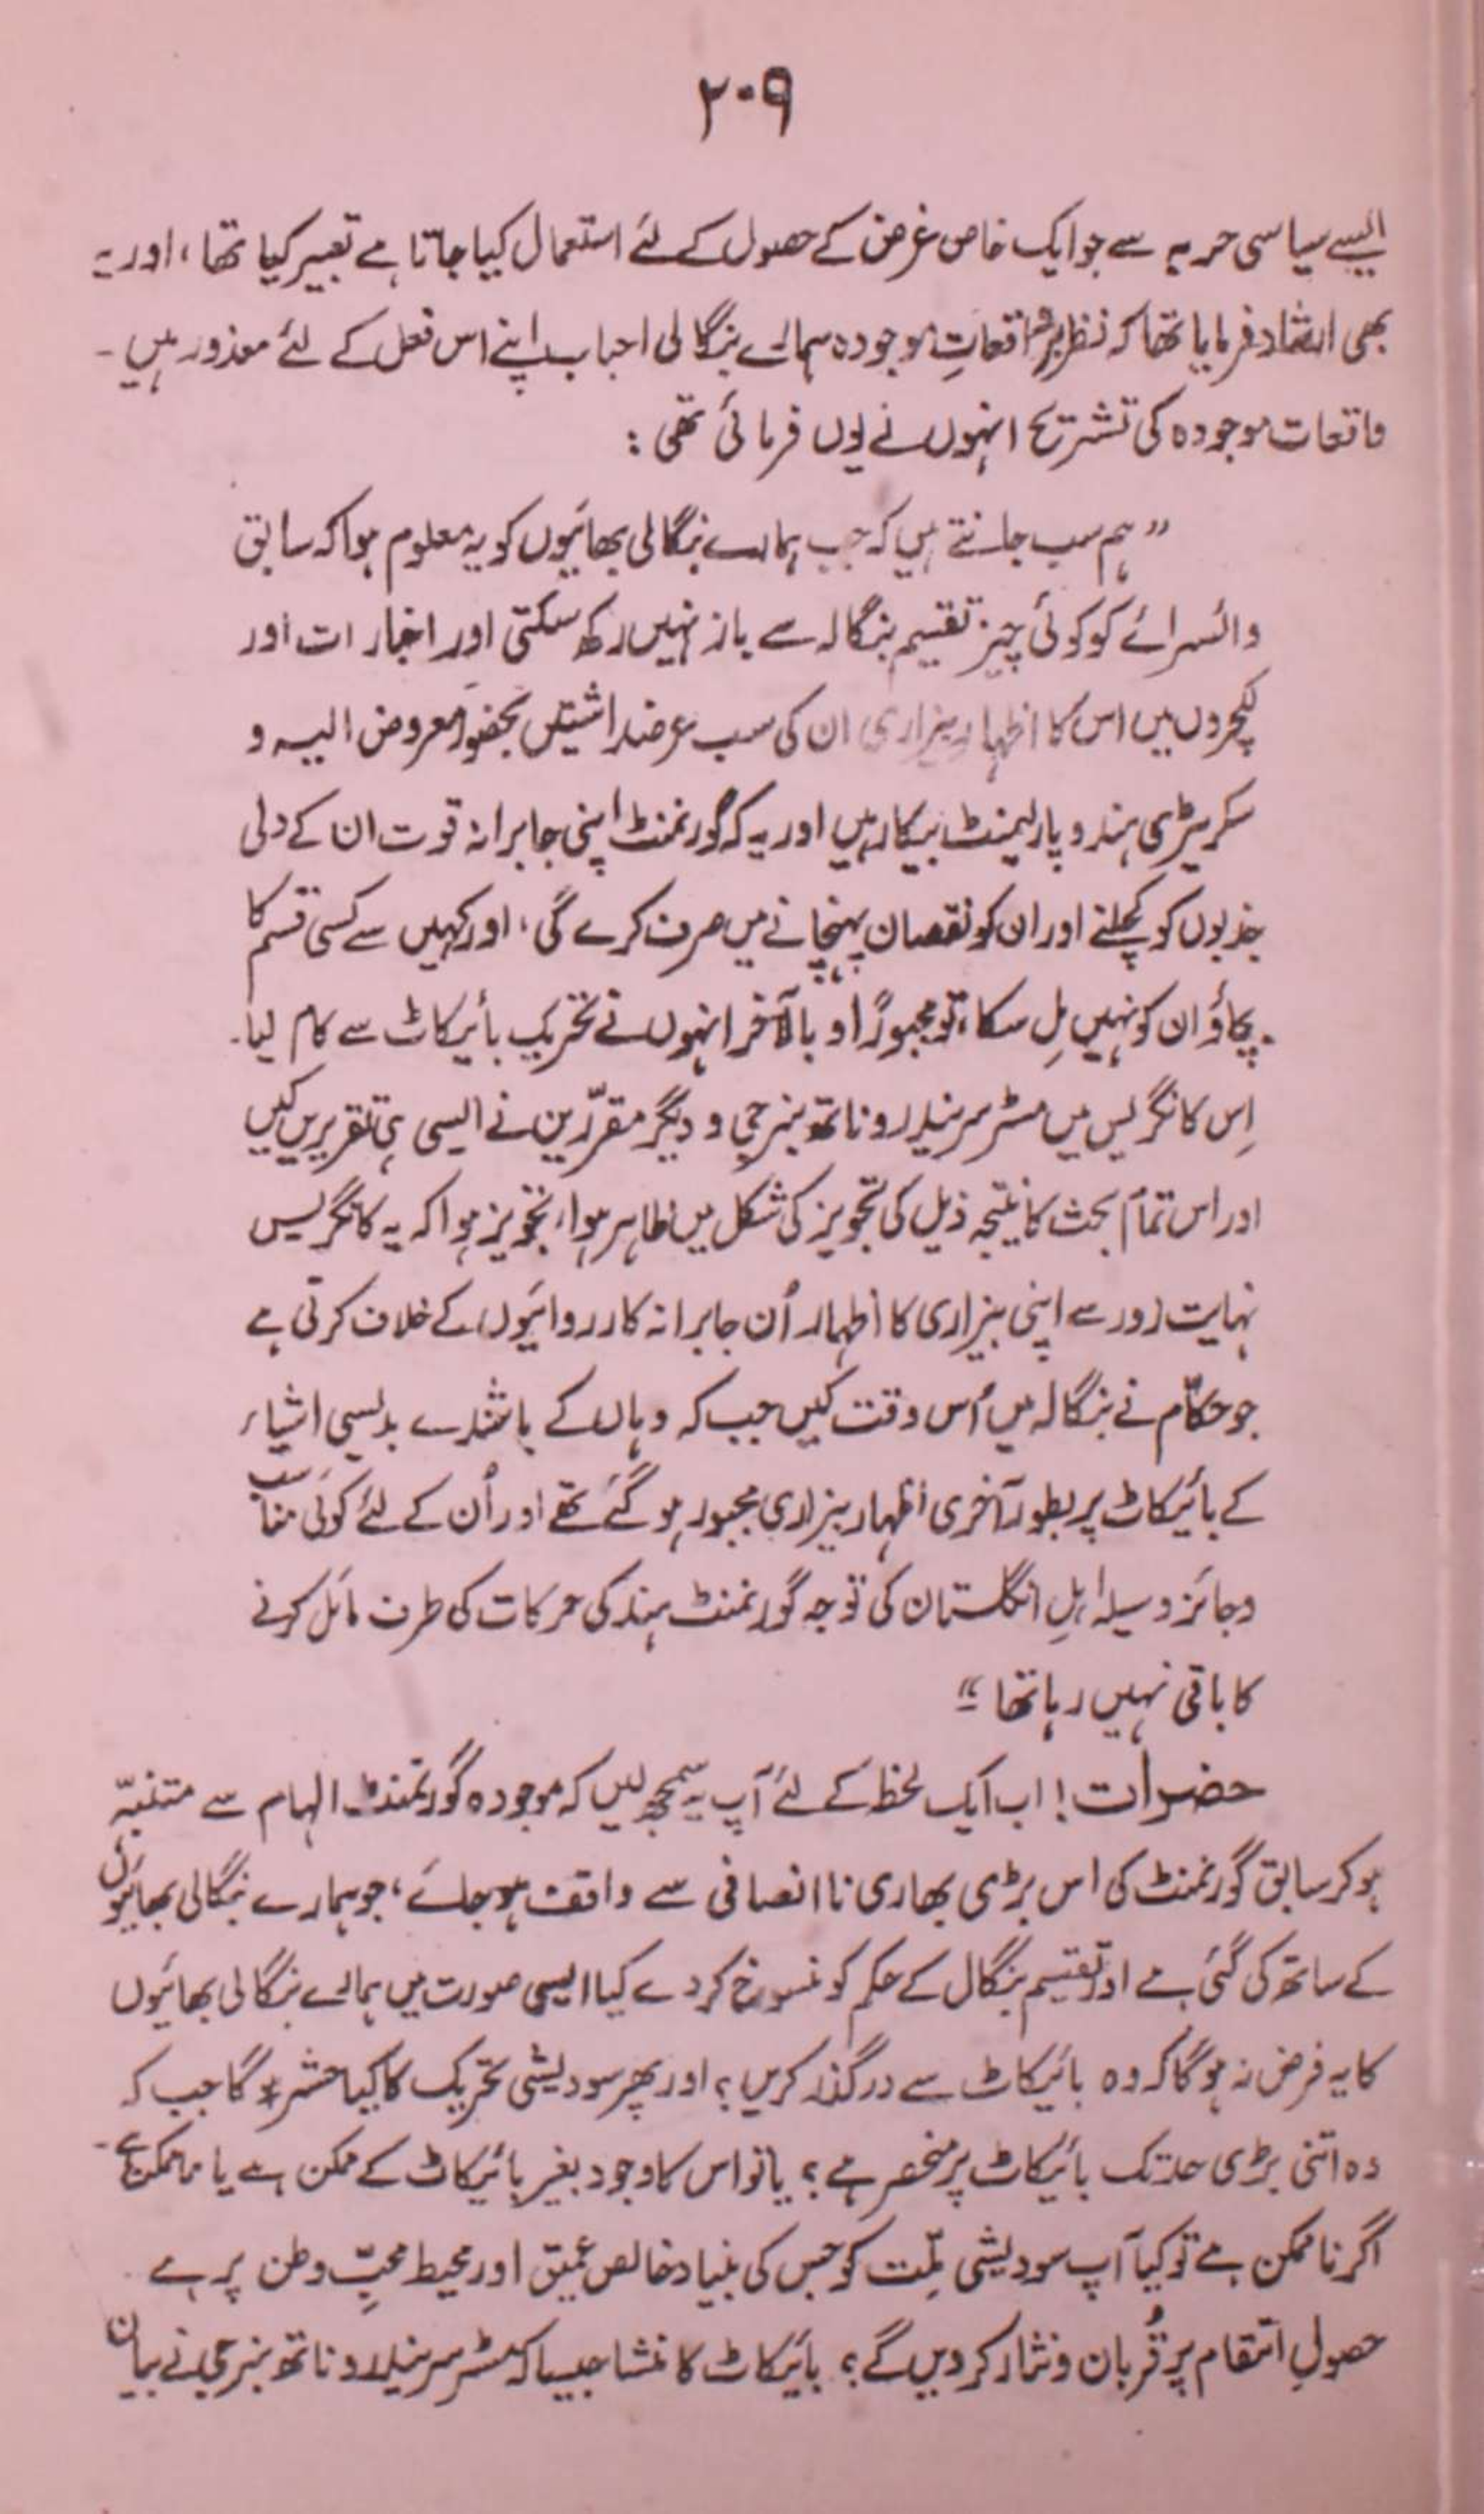 ۲۰۹
ایسے سیاسی حربہ سے جو ایک خاص غرض کے حصول کے لئے استعمال کیا جاتا ہے تعبیر کیا تھا، اور یہ
بھی ارشاد فرمایا تھا کہ نظر بر واقعاتِ موجودہ ہمارے بنگالی احباب اپنے اس فعل کے لئے معذور ہیں۔
واقعات موجودہ کی تشریح انہوں نے یوں فرمائی تھی :
”ہم سب جانتے ہیں کہ جب ہمارے بنگالی بھائیوں کو یہ معلوم ہوا کہ سابق
وائسرائے کو کوئی چیز تقسیم بنگالہ سے باز نہیں رکھ سکتی اور اخبارات اور
لکچروں میں اس کا اظہار بیزاری ان کی سب عرضداشتیں بحضور معروض الیہ و
سکریٹری ہند و پارلیمنٹ بیکار ہیں اور یہ کہ گورنمنٹ اپنی جابرانہ قوت ان کے دلی
جذبوں کو کچلنے اور ان کو نقصان پہنچانے میں صرف کرے گی، اور کہیں سے کسی قسم کا
بچاؤ ان کو نہیں مِل سکا، تو مجبوراً و بالآخر انہوں نے تحریک بائیکاٹ سے کام لیا۔
اِس کانگریس میں مسٹر سریندرو ناتھ بنرجی و دیگر مقرّرین نے ایسی ہی تقریریں کیں
اور اس تمام بحث کا نتیجہ ذیل کی تجویز کی شکل میں ظاہر ہوا، تجویز ہوا کہ یہ کانگریس
نہایت زور سے اپنی بیزاری کا اظہار اُن جابرانہ کارروائیوں کے خلاف کرتی ہے
جو حکّام نے بنگالہ میں اُس وقت کیں جب کہ وہاں کے باشندے بدلیسی اشیاء
کے بائیکاٹ پر بطور آخری اظہار بیزاری مجبور ہو گئے تھے اور اُن کے لئے کوئی مناسب
و جائز وسیلہ اہلِ انگلستان کی توجہ گورنمنٹ ہند کی حرکات کی طرف مائل کرنے
کا باقی نہیں رہا تھا“
حضرات! اب ایک لحظہ کے لئے آپ یہ سمجھ لیں کہ موجودہ گورنمنٹ الہام سے متنبّہ
ہو کر سابق گورنمنٹ کی اس بڑی بھاری ناانصافی سے واقف ہو جائے، جو ہمارے بنگالی بھائیوں
کے ساتھ کی گئی ہے اور تقسیم بنگال کے حکم کو منسوخ کر دے کیا ایسی صورت میں ہمارے بنگالی بھائیوں
کا یہ فرض نہ ہو گا کہ وہ بائیکاٹ سے درگذر کریں؟ اور پھر سودیشی تحریک کا کیا حشر ہو گا جب کہ
وہ اتنی بڑی حد تک بائیکاٹ پر منحصر ہے؟ یا تو اس کا وجود بغیر بائیکاٹ کے ممکن ہے یا ناممکن ہے۔
اگر ناممکن ہے تو کیا آپ سودیشی مِلّت کو جس کی بنیاد خالص عمیق اور محیط محبِّ وطن پر ہے
حصولِ انتقام پر قُربان و نثار کر دیں گے؟ بائیکاٹ کا منشا جیسا کہ مسٹر سریندرو ناتھ بنرجی نے بیان